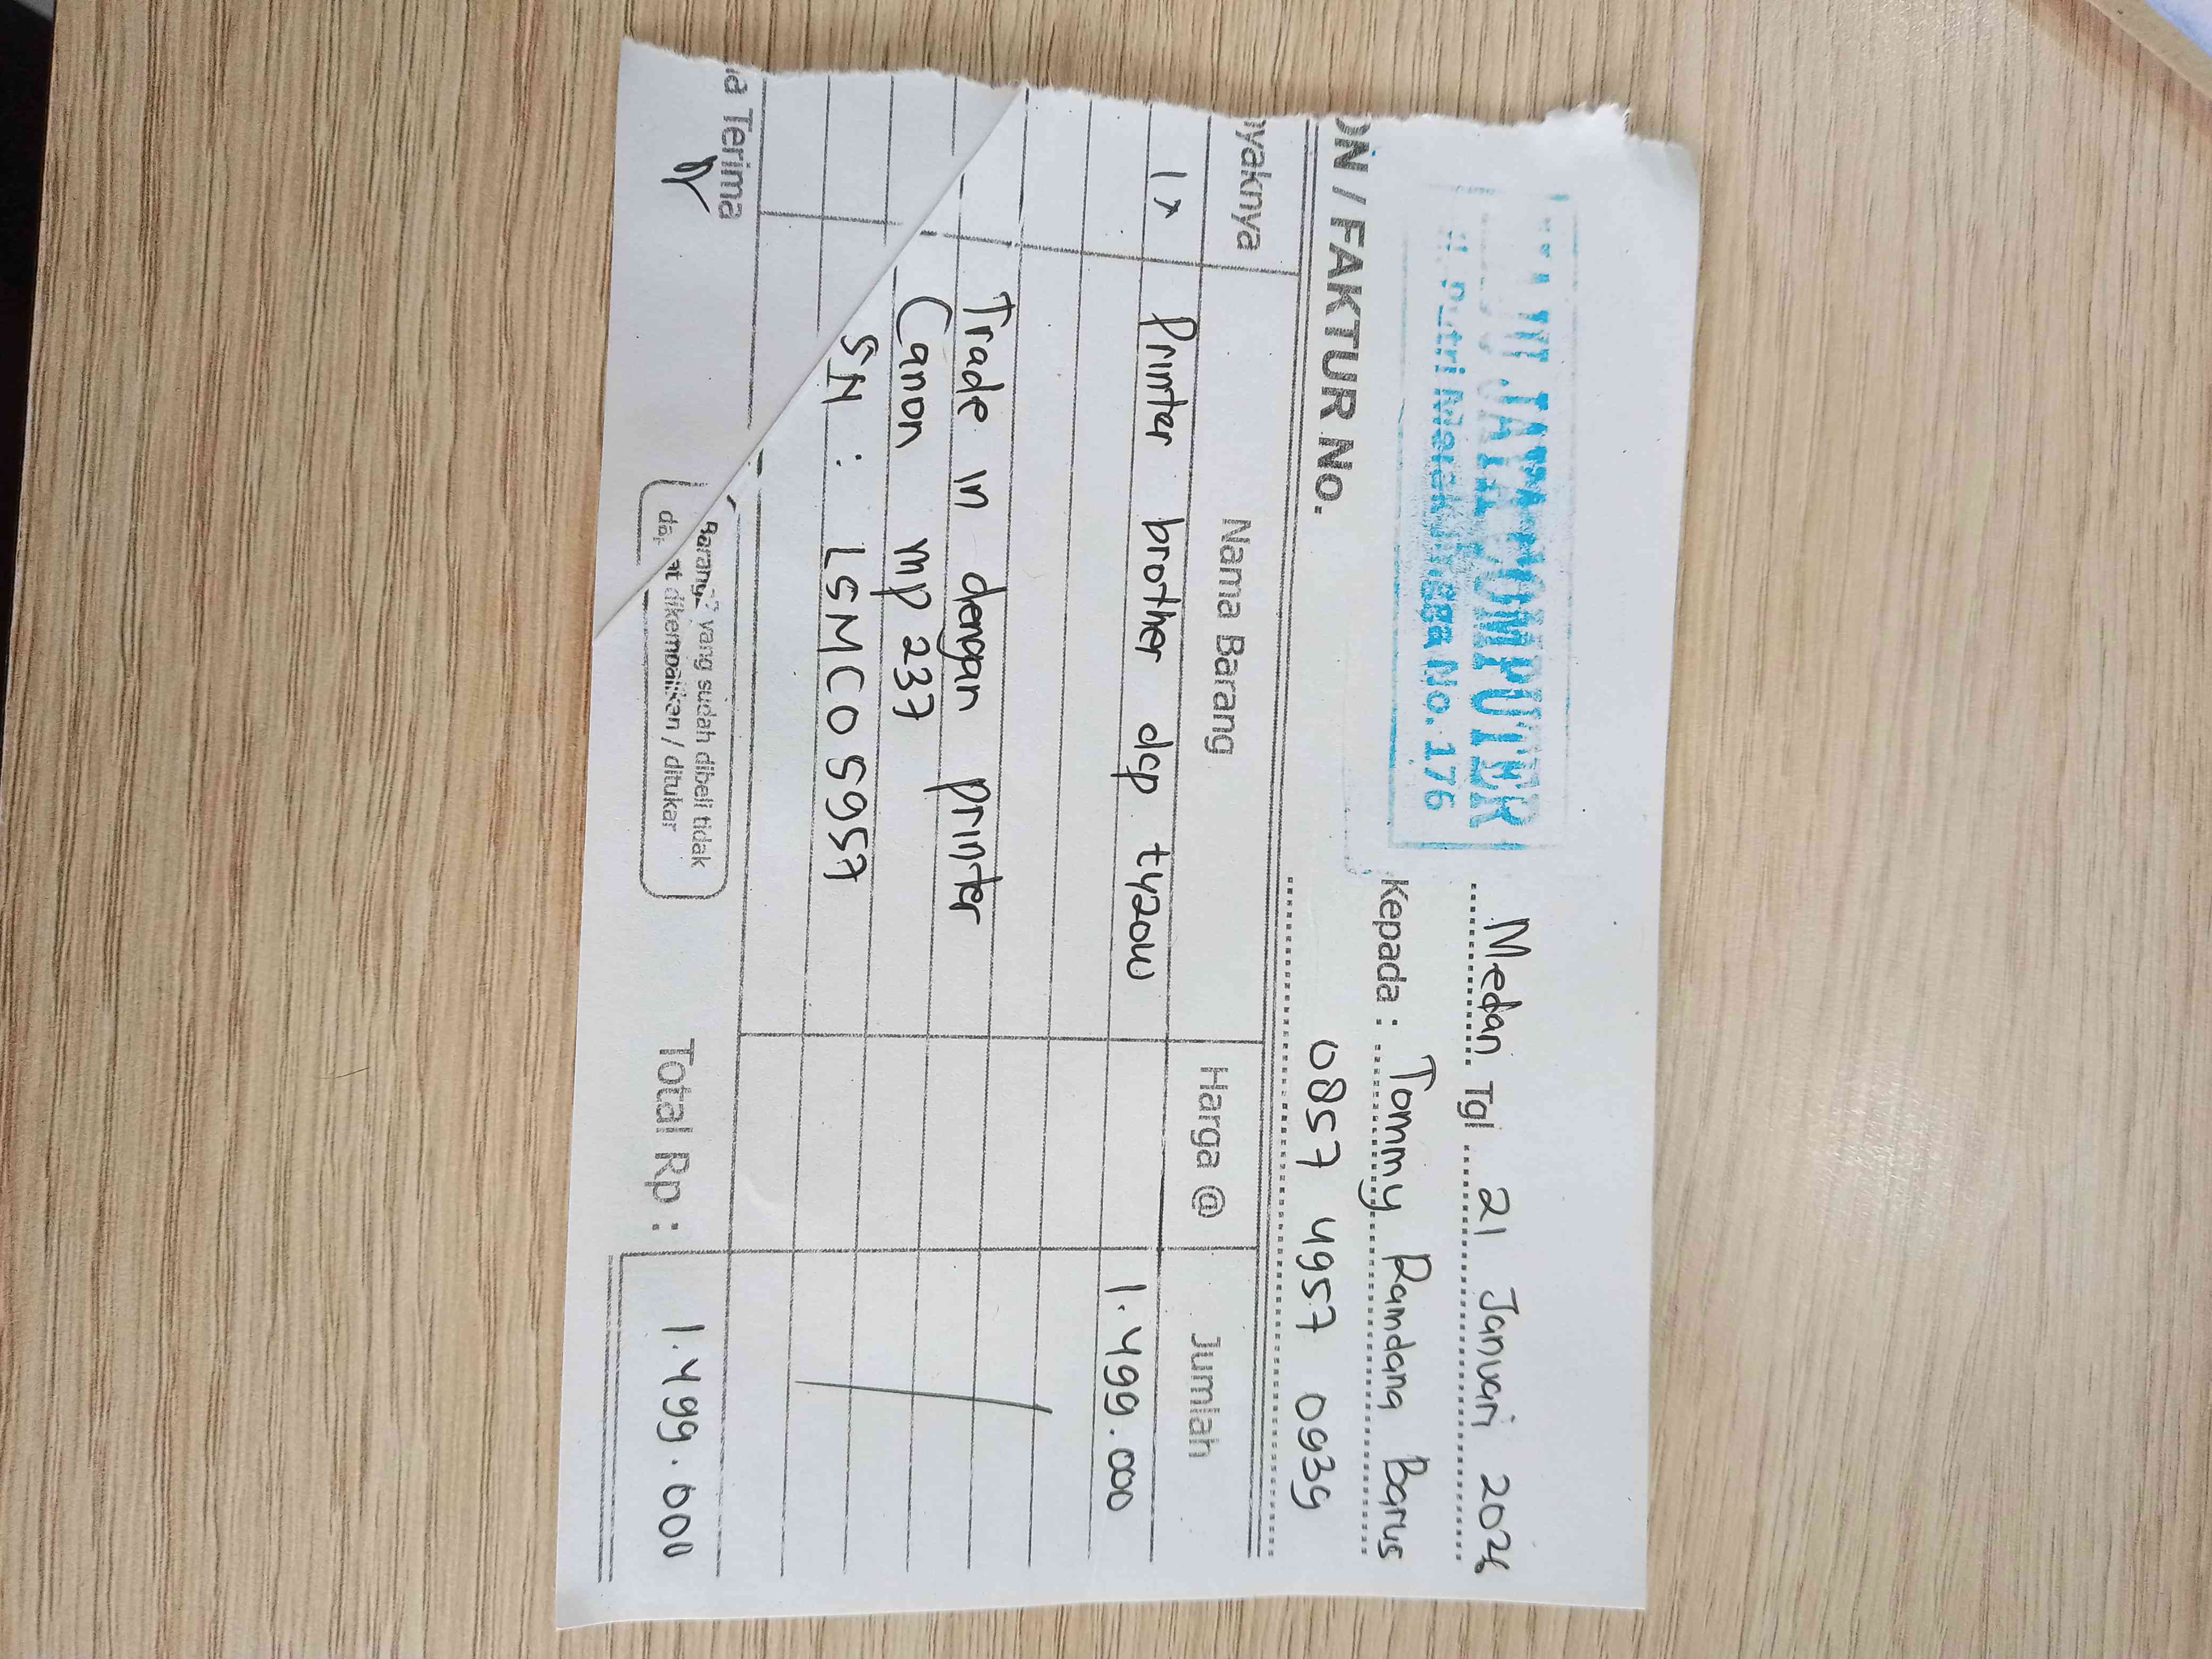 JATA KOMPUTER
No. 176
Medan Tgl 21 Januari 2026
Kepada : Tommy Randang Barus
0857 4957 0939
ON / FAKTUR No.
nyaknya Nama Barang Harga @ Jumlah
1x Printer brother dcp t420w 1.499.000
Trade in dengan printer
Canon mp 237
SN : LSMC05957
a Terima
Barang2 yang sudah dibeli tidak
dapat dikembalikan / ditukar
Total Rp : 1.499.000